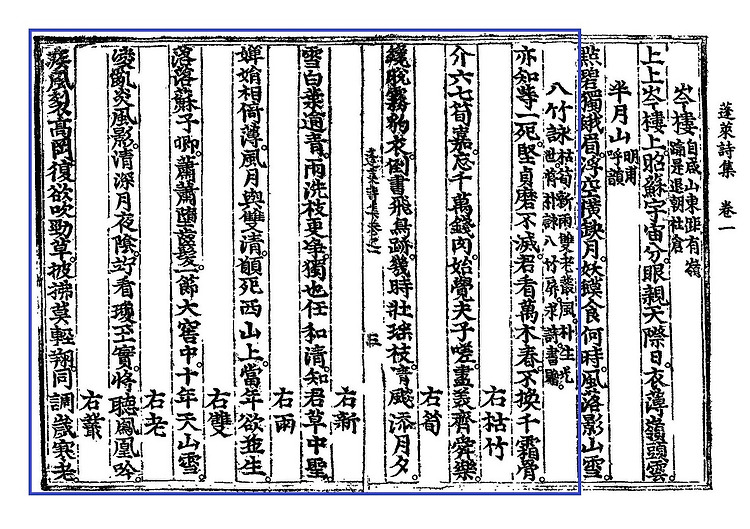 蓬萊詩集 卷一
岑樓 自咸山東距有嶺
上上岑樓上。昭蘇宇宙分。眼親天際日。衣薄嶺頭雲。
半月山 明甫呼韻
點碧獨蛾眉。浮空橫缺月。妖蟆食何時。風落影山雪。
八竹詠 枯筍新雨雙老叢風 詠八竹屛求詩書贈
亦知等一死。堅貞磨不滅。君看萬木春。不換千霜骨。
右枯竹
介六七筍嘉。忘千萬錢肉。始覺夫子嗟。盡美齊舜樂。
右筍
纔脫霧豹衣。倒書飛鳥跡。幾時壯瑤枝。颺添月夕。
蓬萊詩集卷之一
右新
雪白葉迺靑。雨洗枝更淨。獨也任和清。知君草中聖。
右雨
嬋娟相倚薄。風月與雙清。死西山上。當年欲並生。
右雙
落落蘇子卿。蕭蕭墮齒髮。一節大窖中。十年天山雪。
右老
凌亂炎風影。清深月夜陰。竚看瓊玉實。將聽鳳凰吟。
右叢
疾風裂高岡。復欲吹勁草。披拂莫輕翔。同調歲寒老。